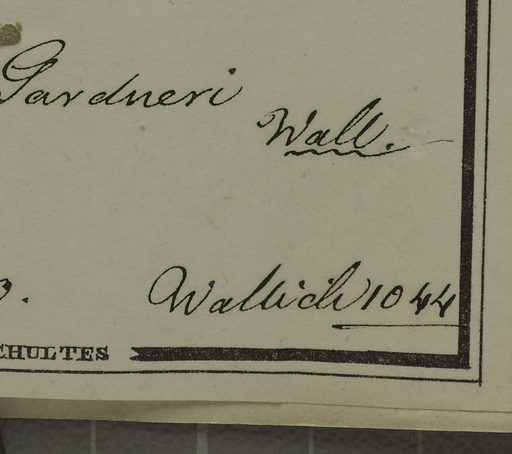 Gardneri
Wall.
Wallich 1044
CHULTES